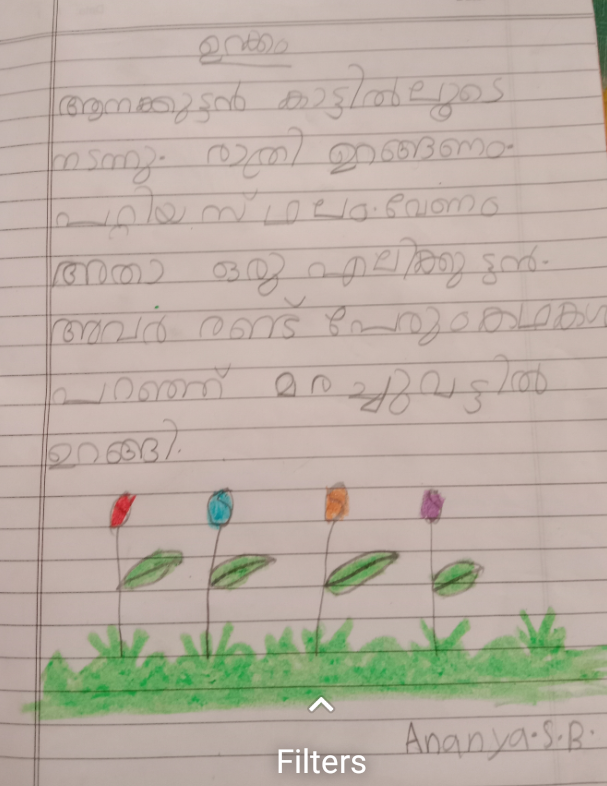 ഉറക്കം
ആനക്കുട്ടൻ കാട്ടിൽലൂടെ
നടന്നു. രാത്രി ഉറങ്ങേണം.
പറ്റിയ സ്ഥലം.വേണം
അതാ ഒരു എലിക്കുട്ടൻ.
അവർ രണ്ട് പേരും കഥകൾ
പറഞ്ഞ് മരച്ചുവട്ടിൽ
ഉറങ്ങി.
Ananya.S.B.
Filters